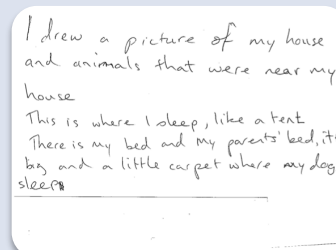 I drew a picture of my house
and animals that were near my
house
This is where I sleep, like a tent
There is my bed and my parents' bed, it
big and a little carpet where my dog
sleeps